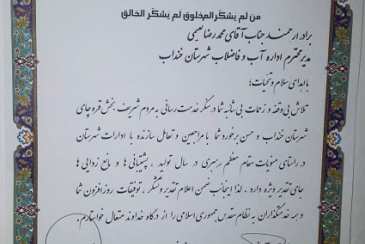 من لم یشکر المخلوق لم یشکر الخالق
برادر ارجمند جناب آقای محمد رضا نعیمی
مدیر محترم اداره آب و فاضلاب شهرستان خنداب
با اهدای سلام و تحیات؛
تلاش بی وقفه و زحمات بی شائبه شما در سنگر خدمت رسانی به مردم شریف بخش قره چای
شهرستان خنداب و حسن برخورد شما با مراجعین و تعامل سازنده با ادارات شهرستان
در راستای منویات مقام معظم رهبری در سال تولید ، پشتیبانی ها و مانع زدایی ها
جای تقدیر ویژه دارد . لذا اینجانب ضمن اعلام تقدیر و تشکر ، توفیقات روزافزون شما
و همه خدمتگذاران به نظام مقدس جمهوری اسلامی را از درگاه خداوند متعال خواستارم.